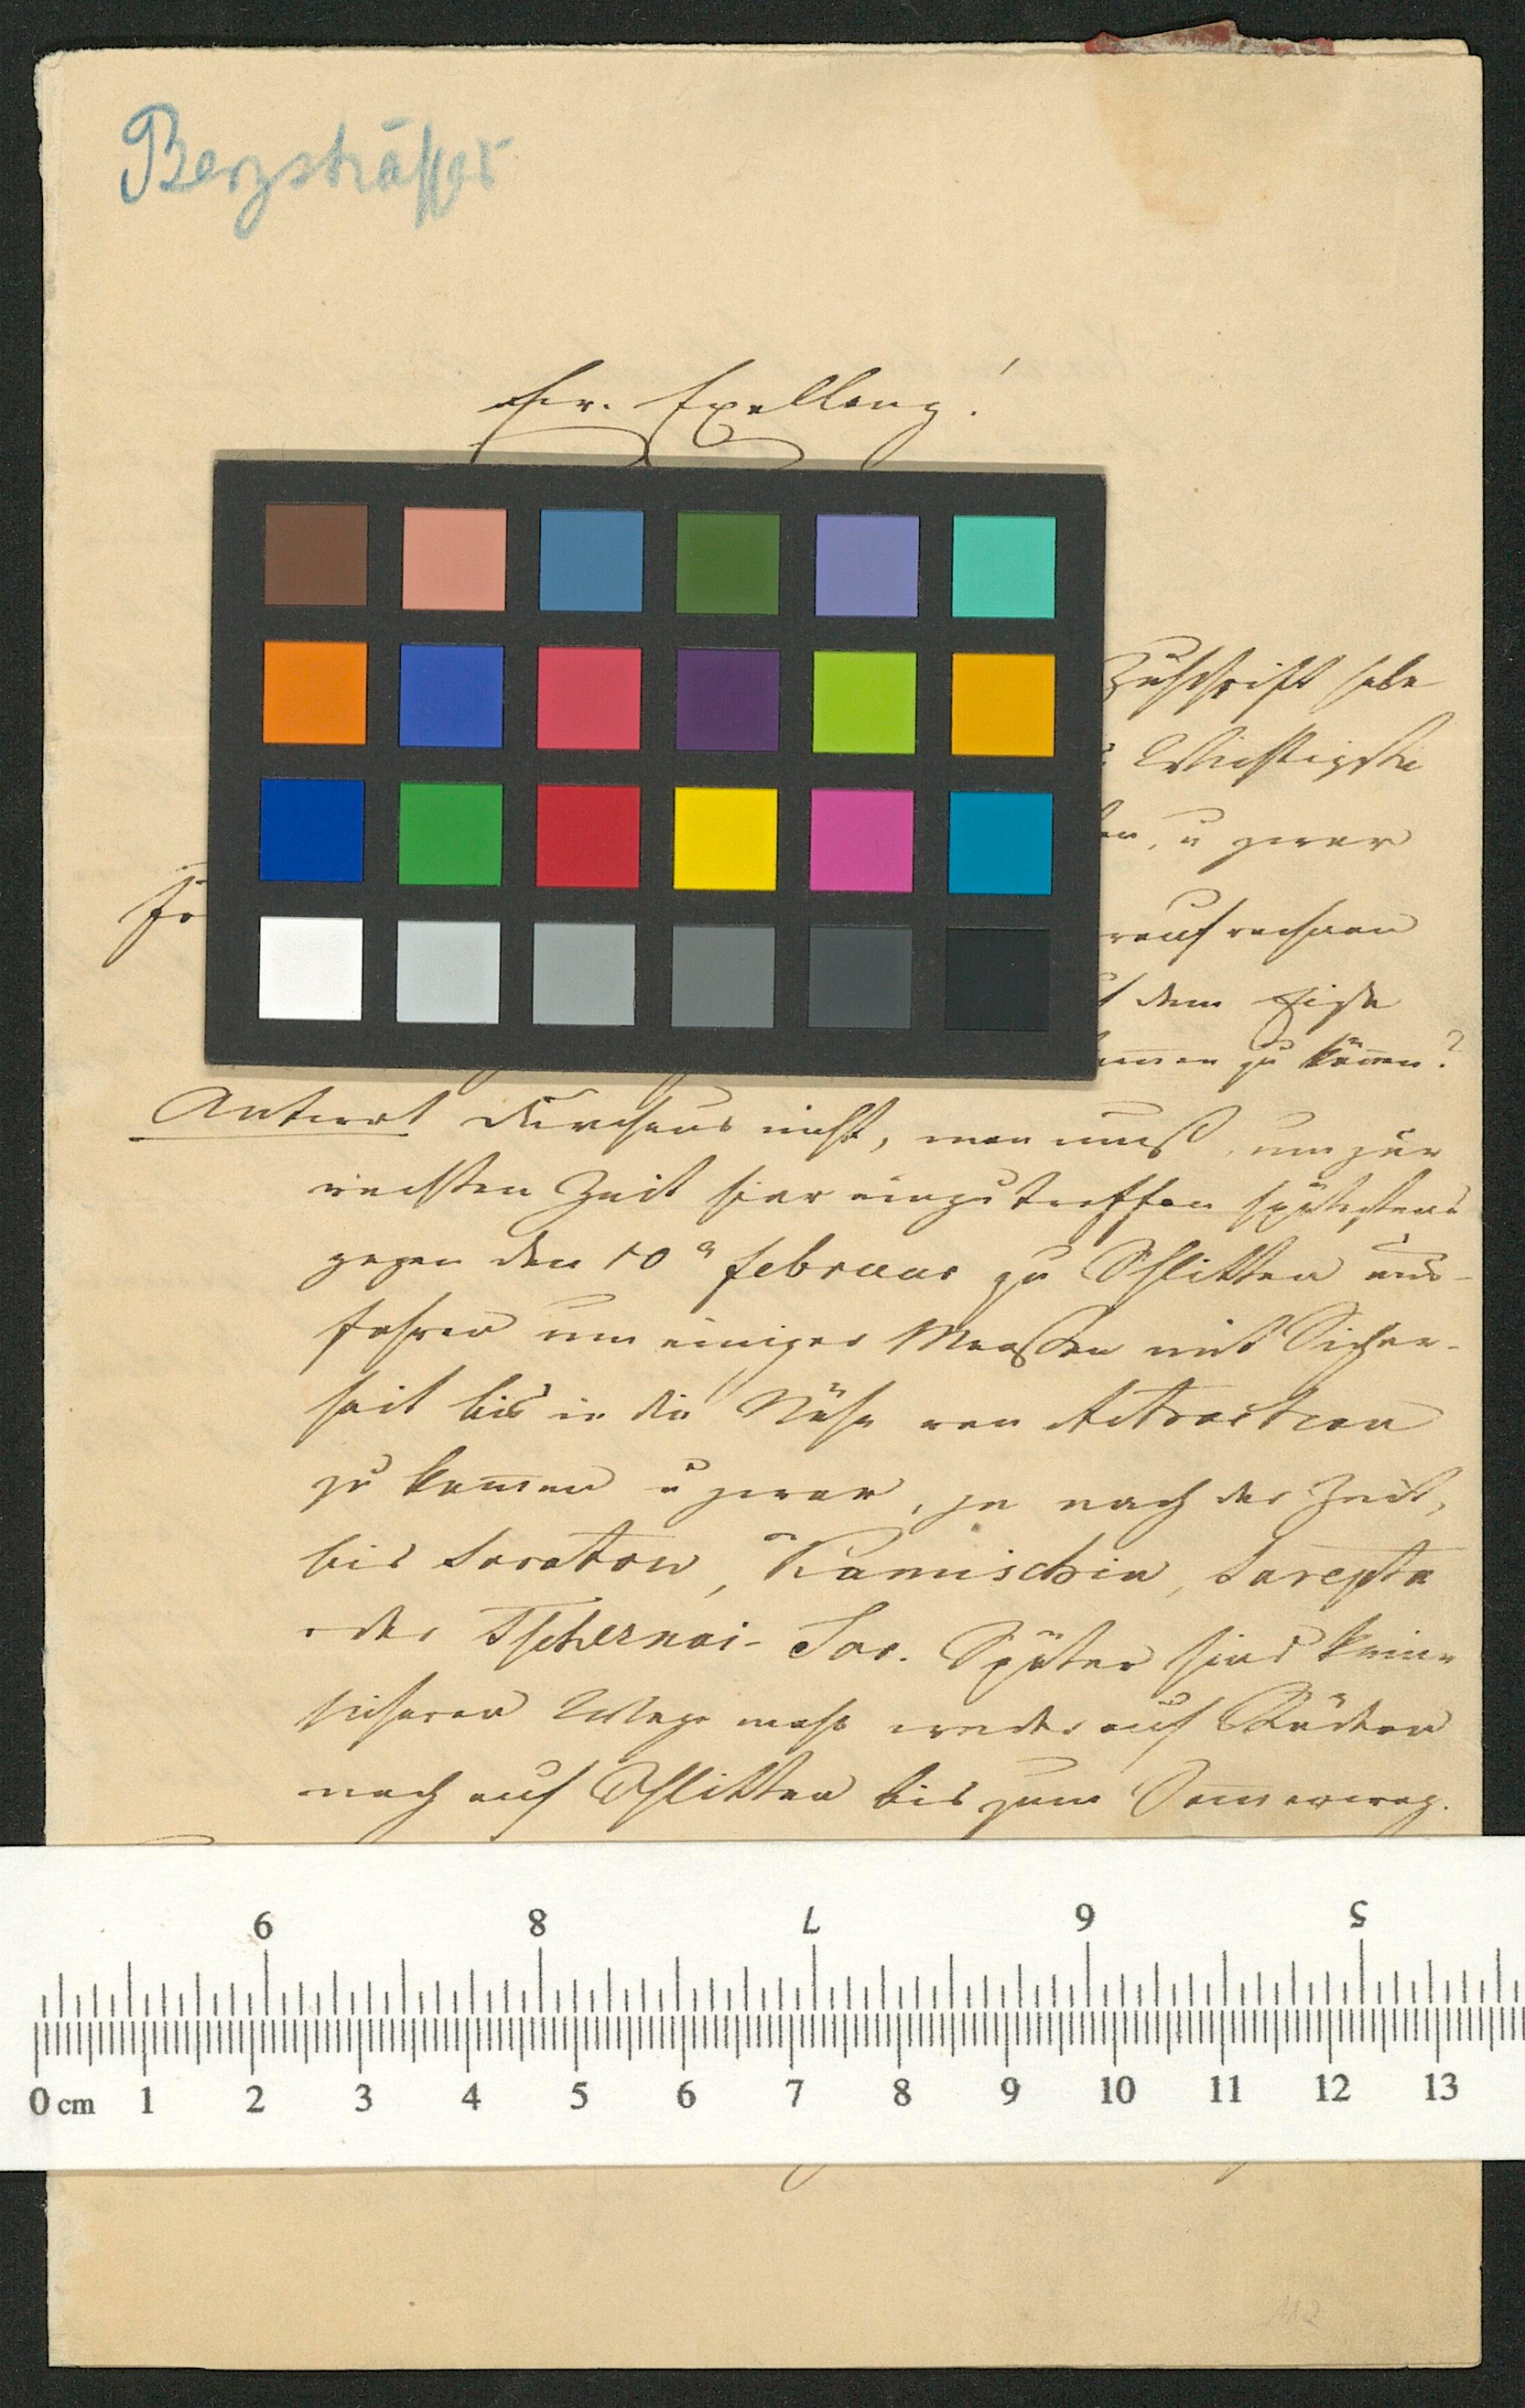 Bergsträsser
Ew. Exellenz!
Zuschrift habe
Wichtigste
u zwar
Fr
rauf rechnen
dem Eise
kommen zu können?
Antwort durchaus nicht, man muß, um zur
rechten Zeit hier einzutreffen spätestens
gegen den 10n februar zu Schlitten aus-
fahren um einiger Maaßen mit Sicher-
heit bis in die Nähe von Astrachan
zu kommen u zwar, je nach der Zeit,
bis Saratow, Kamischin, Sarepta
oder Tschernoi-Jar. Später sind keine
sicheren Wege mehr weder auf Rädern
noch auf Schlitten bis zum Sommerweg.
9 8 7 6 5
0 cm 1 2 3 4 5 6 7 8 9 10 11 12 13